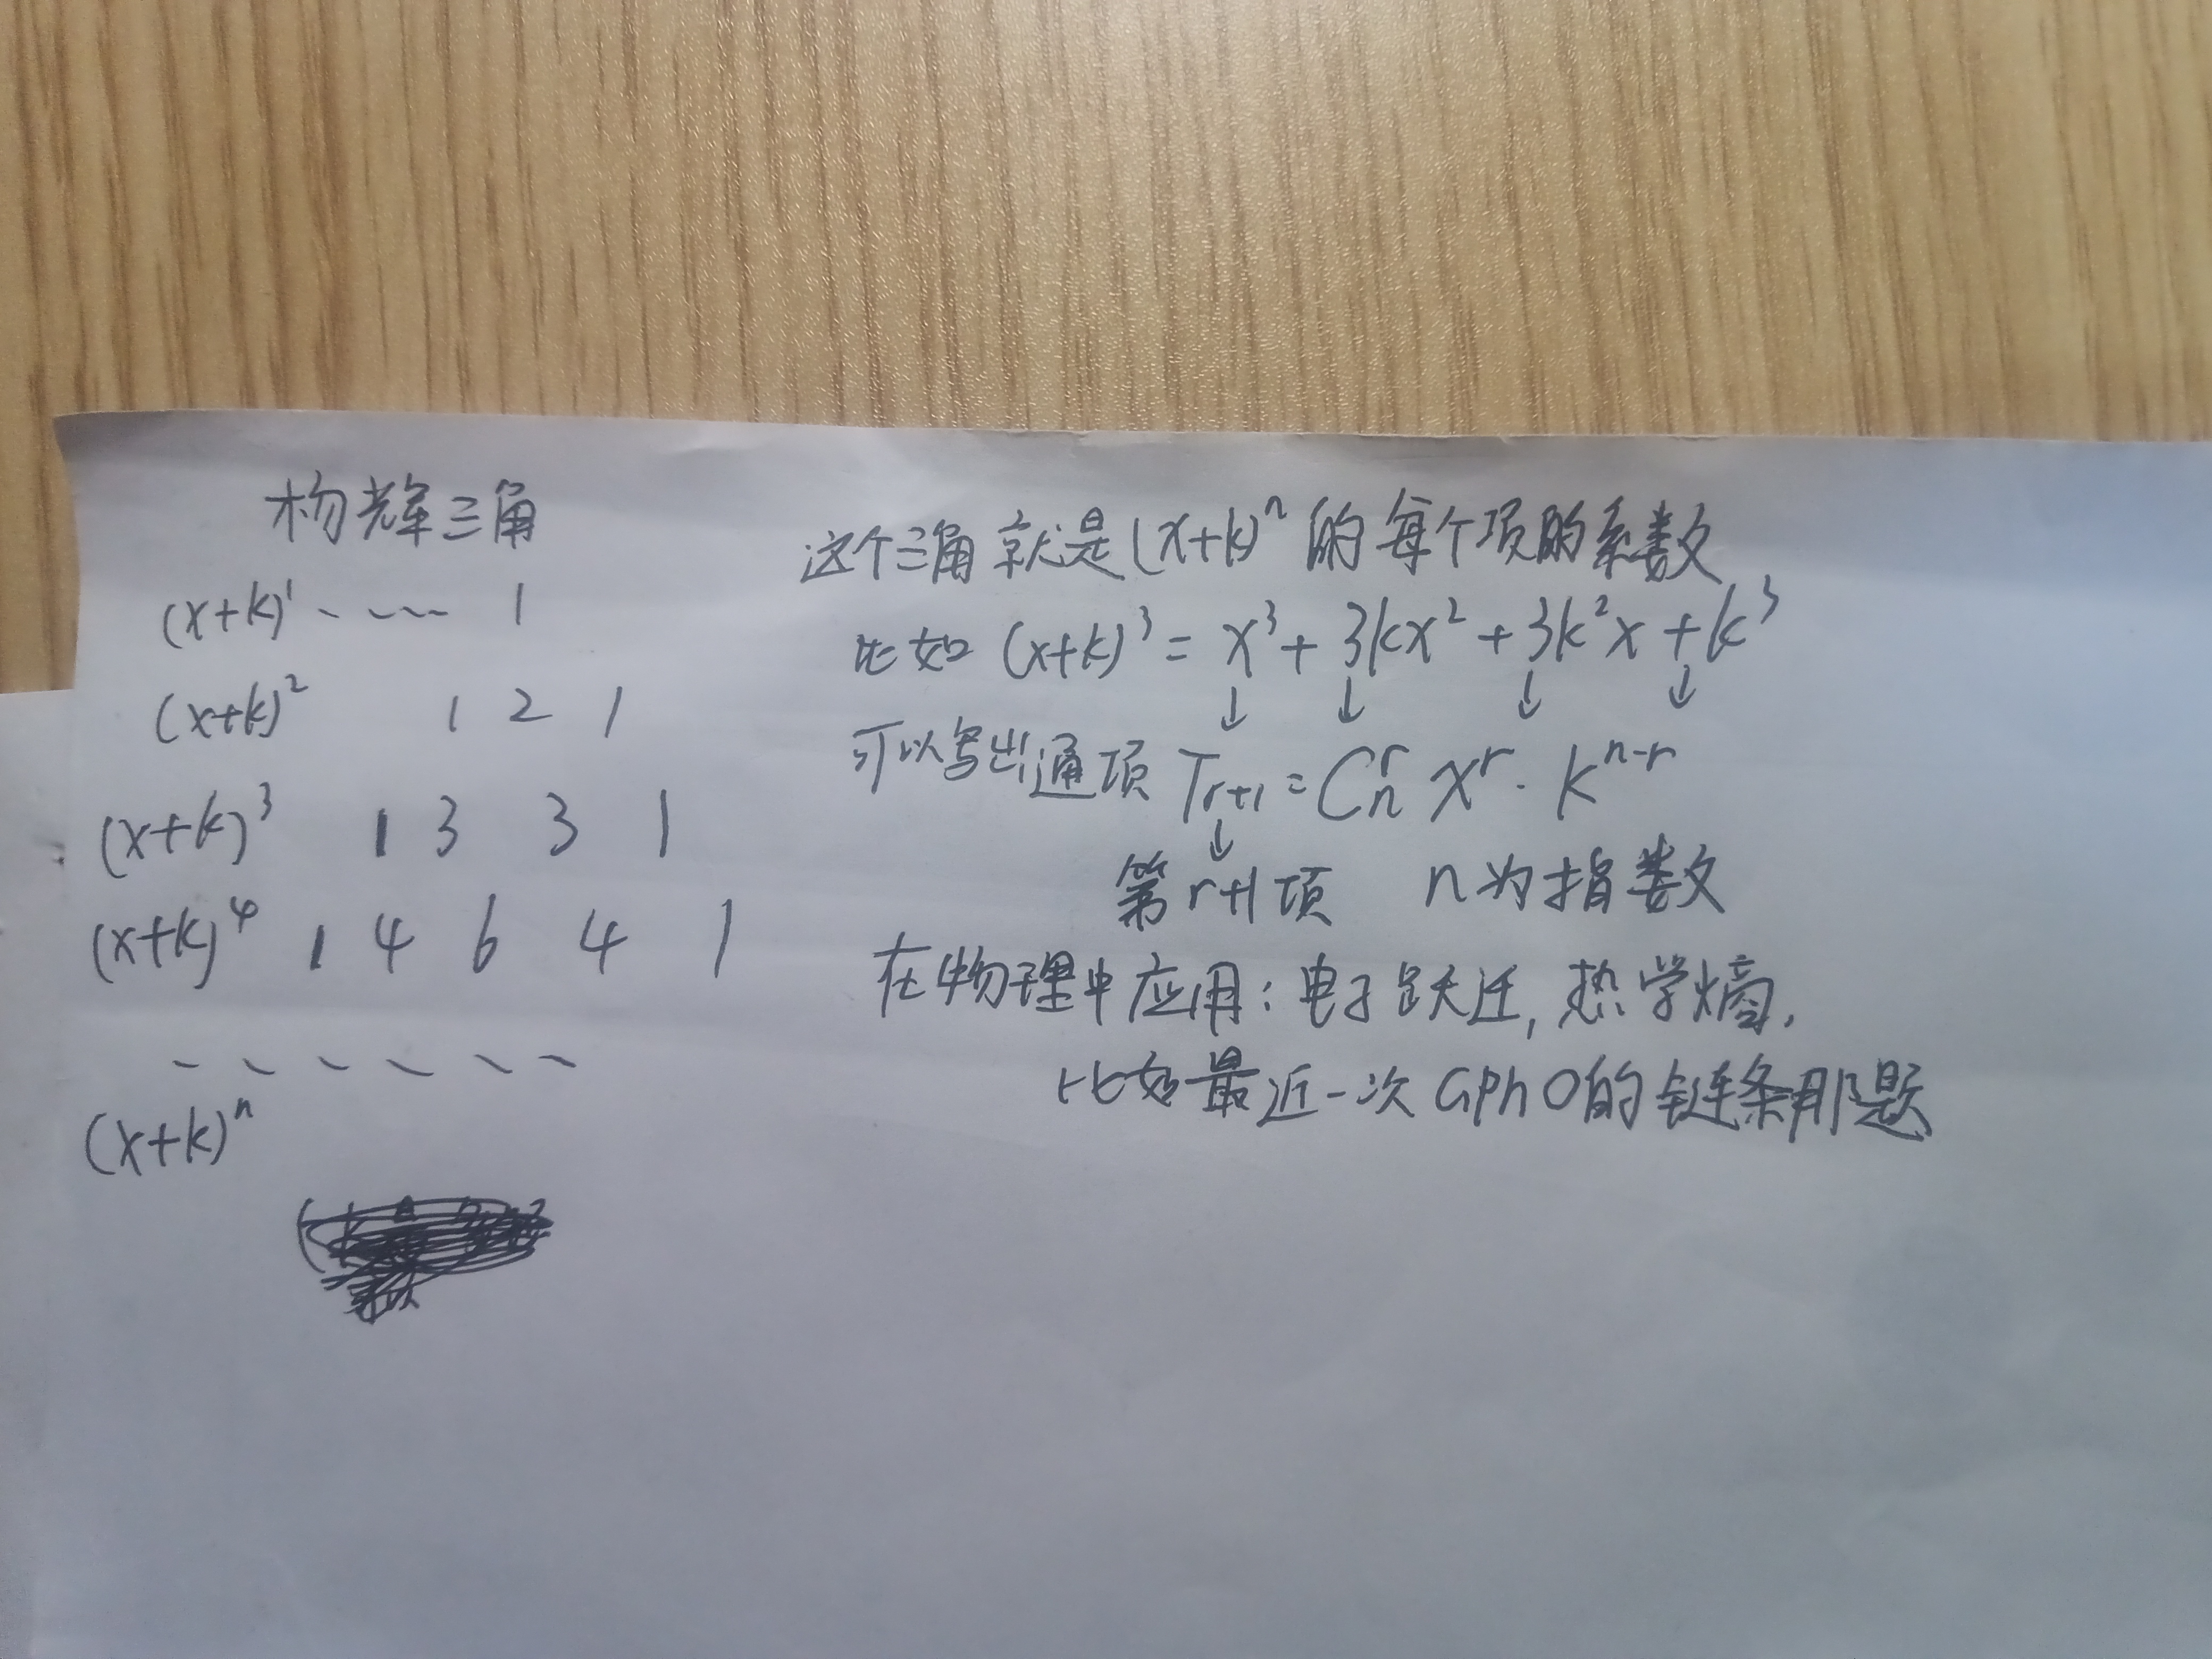 杨辉三角
(x+k)¹ - - - - 1
(x+k)² 1 2 1
(x+k)³ 1 3 3 1
(x+k)⁴ 1 4 6 4 1
- - - - - -
(x+k)ⁿ
这个三角就是(x+k)ⁿ的每个项的系数
比如 (x+k)³ = x³ + 3kx² + 3k²x + k³
↓ ↓ ↓ ↓
可以写出通项 Tᵣ₊₁ = Cₙʳ xʳ · kⁿ⁻ʳ
↓
第r+1项 n为指数
在物理中应用：电子跃迁, 热学熵.
比如最近一次GPhO的链条那题